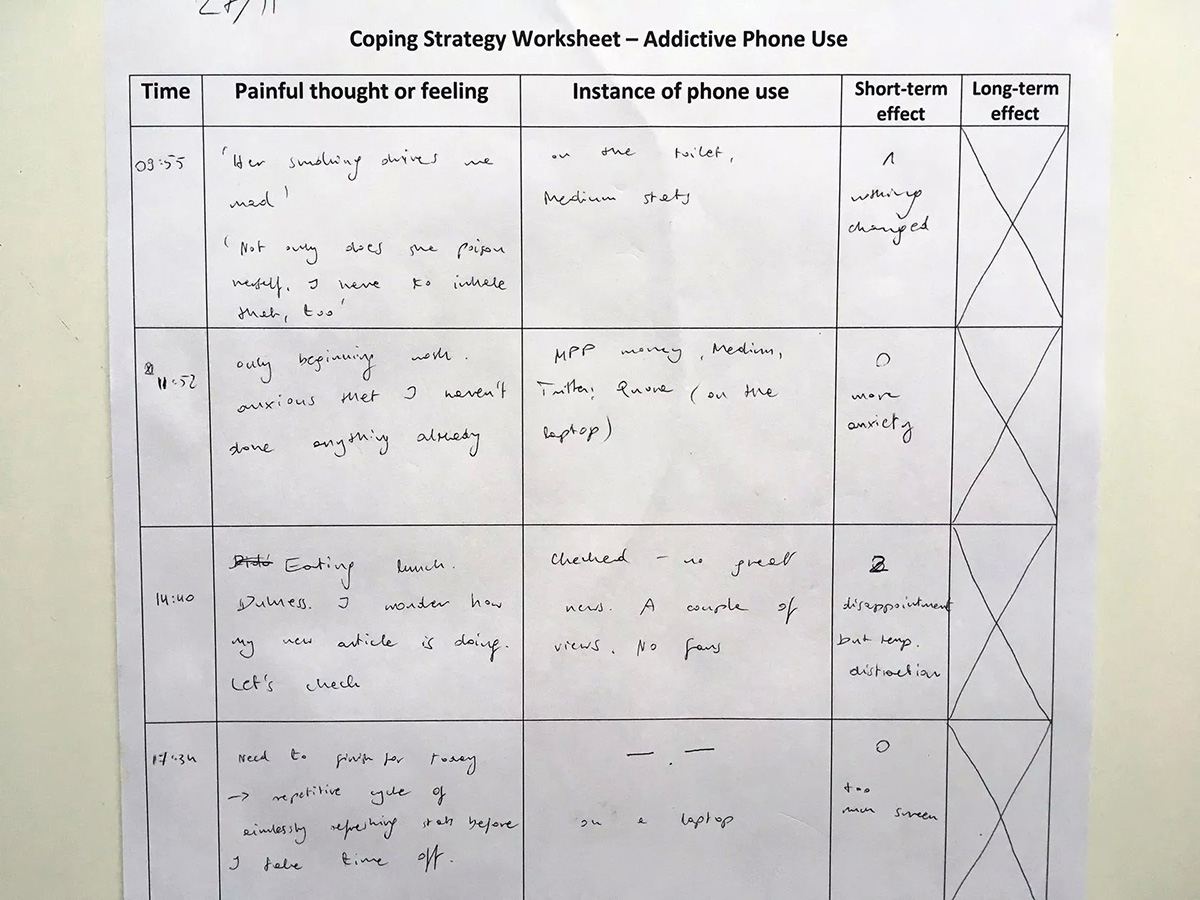 27/11
Coping Strategy Worksheet – Addictive Phone Use
Time
Painful thought or feeling
Instance of phone use
Short-term
effect
Long-term
effect
09:55
'Her smoking drives me
mad'
'Not only does she poison
herself, I have to inhale
that, too'
on the toilet,
Medium stats
1
nothing
changed
11:52
only beginning work.
anxious that I haven't
done anything already
MPP money, Medium,
Twitter, Quora (on the
laptop)
0
more
anxiety
14:40
Eating lunch.
Dulness. I wonder how
my new article is doing.
Let's check
Checked – no great
news. A couple of
views. No fans
2
disappointment
but temp.
distraction
17:34
Need to finish for today
-> repetitive cycle of
aimlessly refreshing stats before
I take time off.
— . —
on a laptop
0
too
much screen